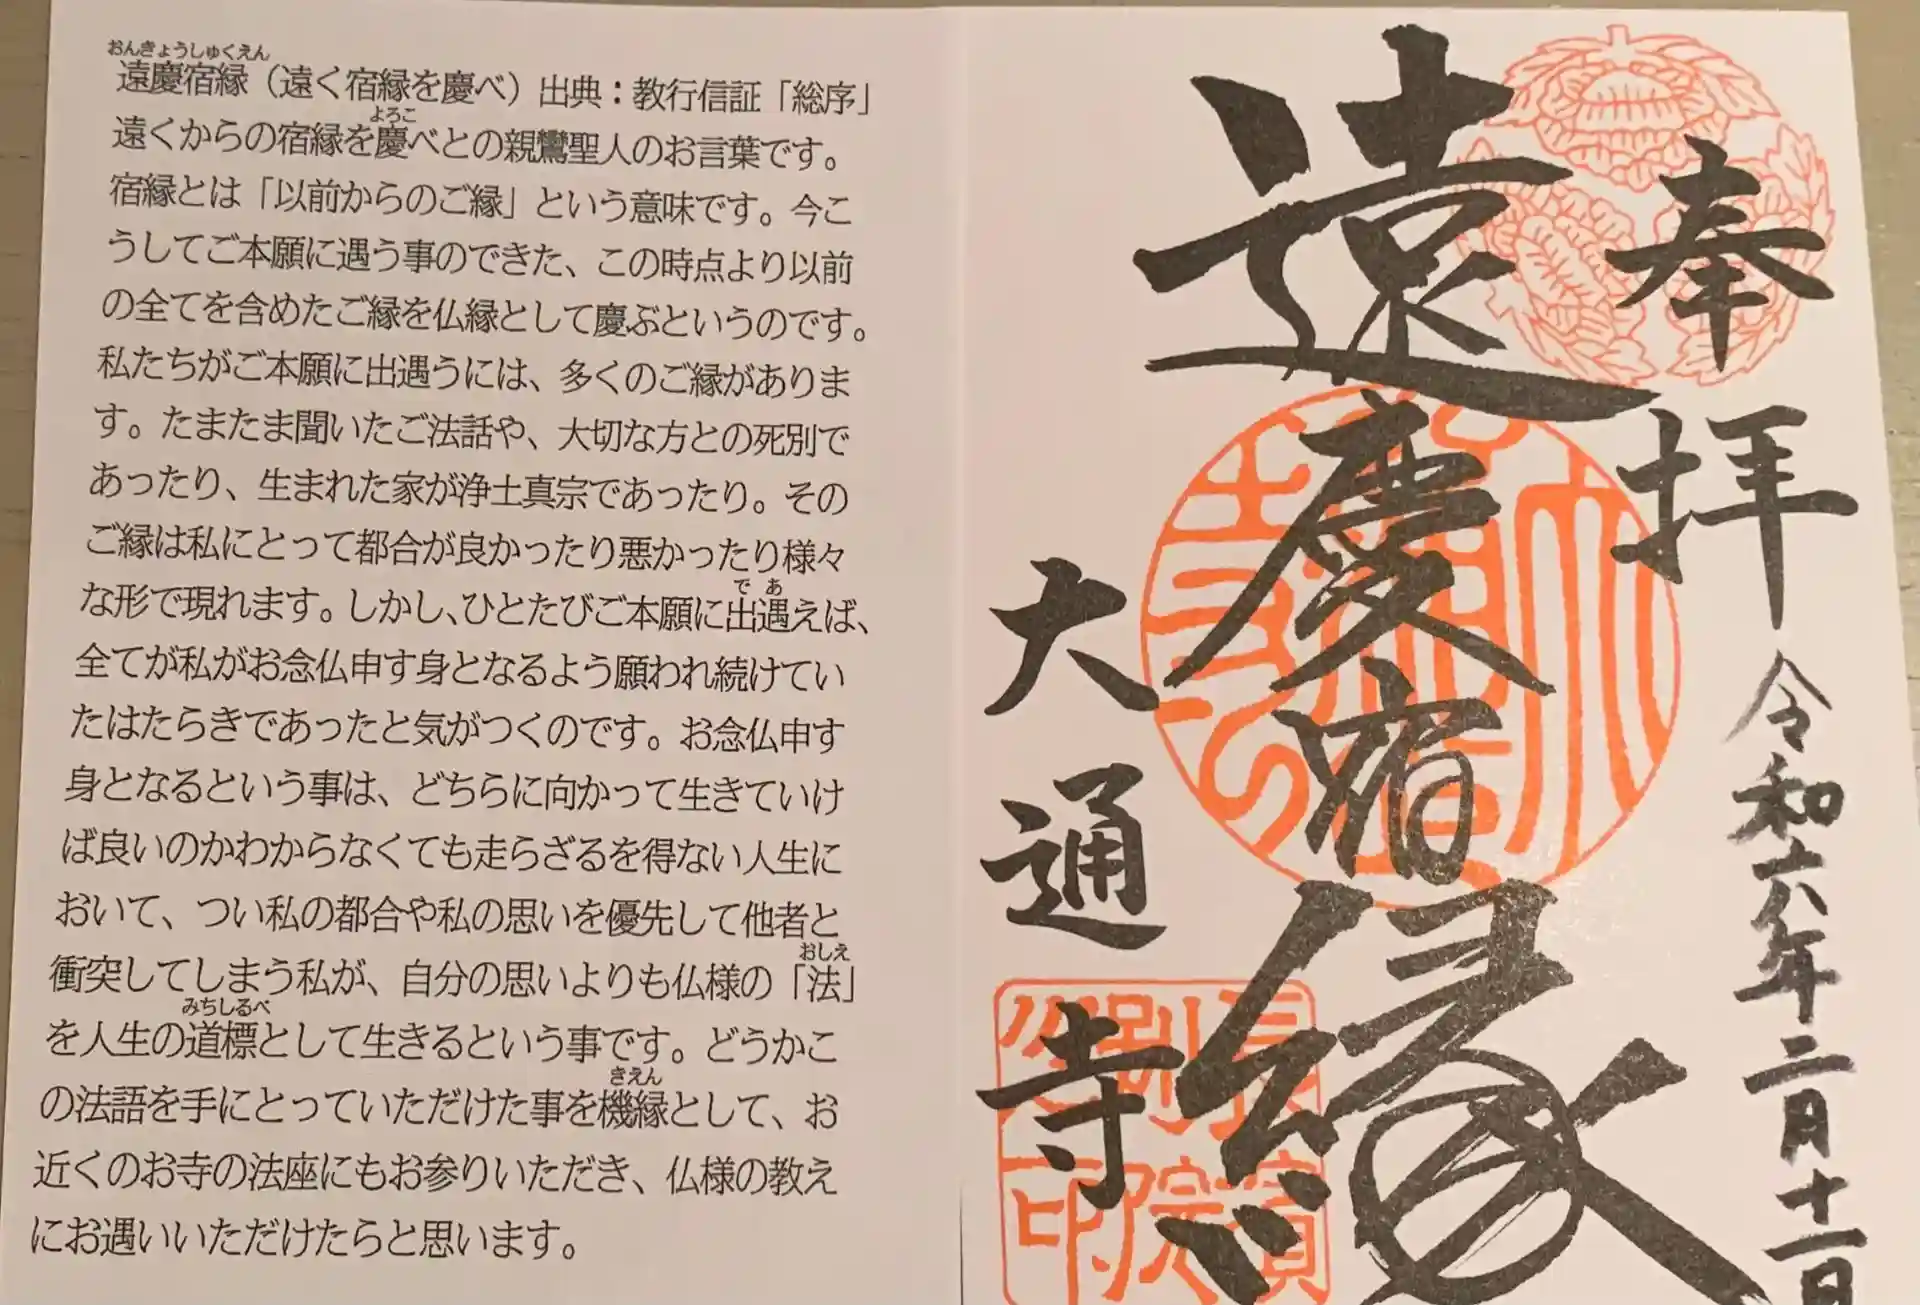 おんきょうしゅくえん
遠慶宿縁（遠く宿縁を慶べ）出典：教行信証「総序」
よろこ
遠くからの宿縁を慶べとの親鸞聖人のお言葉です。
宿縁とは「以前からのご縁」という意味です。今こ
うしてご本願に遇う事のできた、この時点より以前
の全てを含めたご縁を仏縁として慶ぶというのです。
私たちがご本願に出遇うには、多くのご縁がありま
す。たまたま聞いたご法話や、大切な方との死別で
あったり、生まれた家が浄土真宗であったり。その
ご縁は私にとって都合が良かったり悪かったり様々
で あ
な形で現れます。しかし、ひとたびご本願に出遇えば、
全てが私がお念仏申す身となるよう願われ続けてい
たはたらきであったと気がつくのです。お念仏申す
身となるという事は、どちらに向かって生きていけ
ば良いのかわからなくても走らざるを得ない人生に
おいて、つい私の都合や私の思いを優先して他者と
おしえ
衝突してしまう私が、自分の思いよりも仏様の「法」
みちしるべ
を人生の道標として生きるという事です。どうかこ
きえん
の法語を手にとっていただけた事を機縁として、お
近くのお寺の法座にもお参りいただき、仏様の教え
にお遇いいただけたらと思います。
奉拝
令和六年二月十一日
遠慶宿縁
大通寺
長濱
別院
印